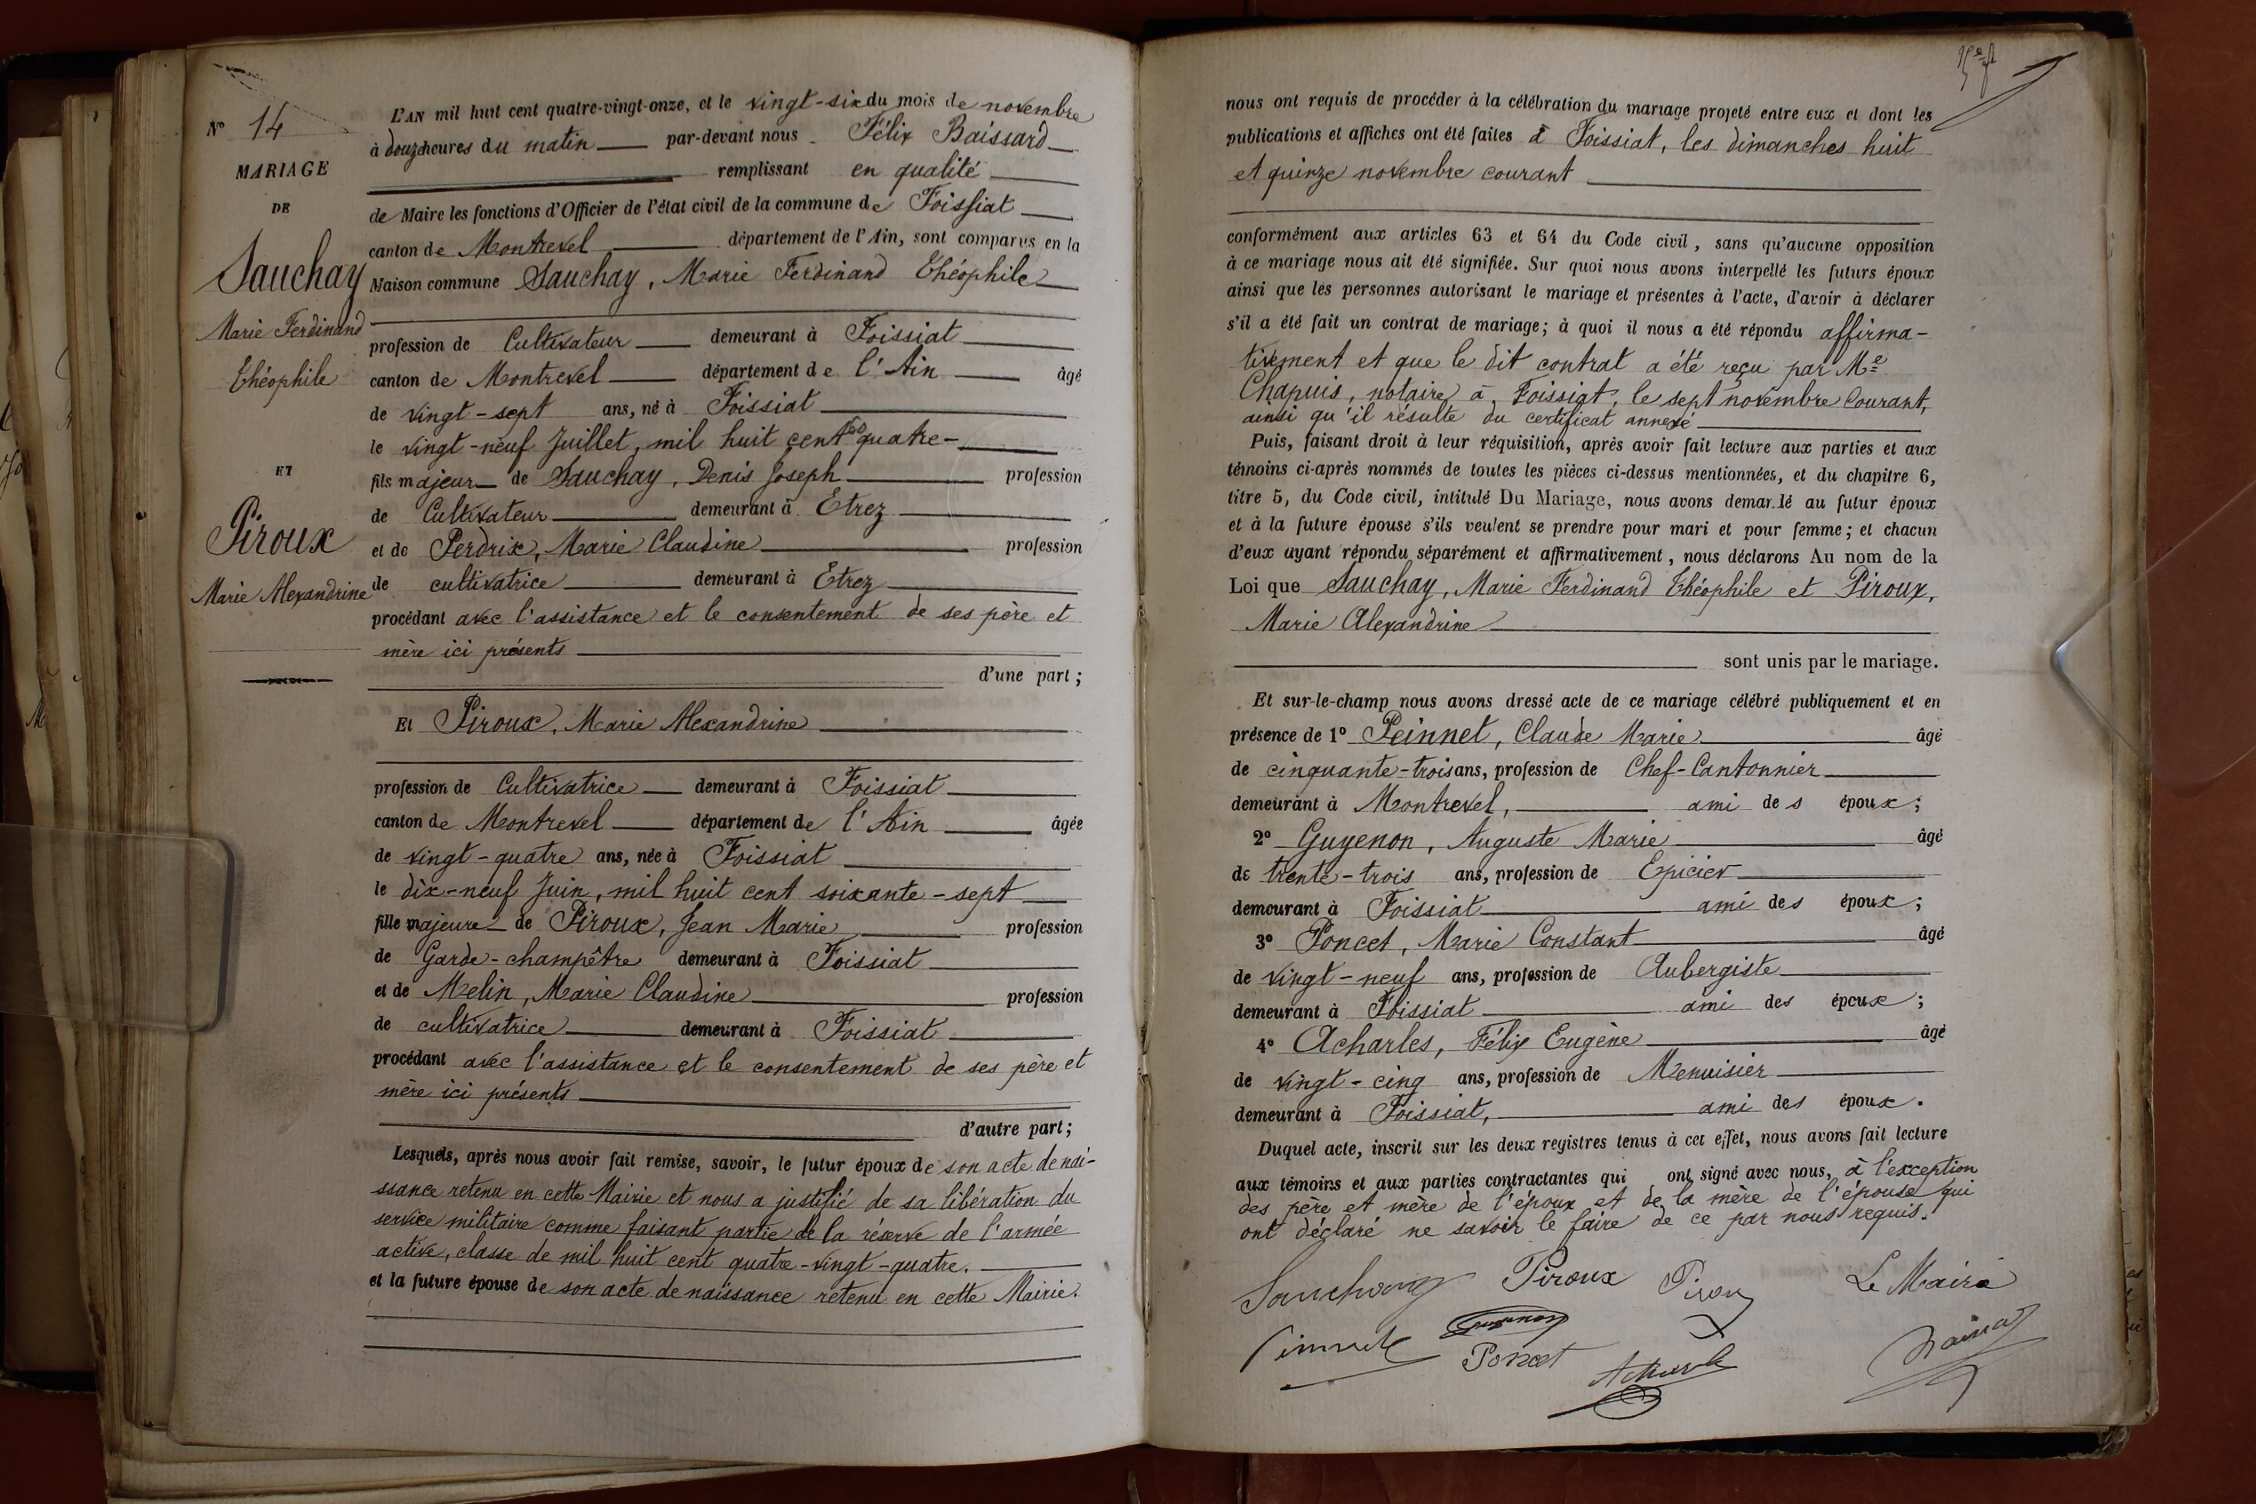 N° 14
MARIAGE
DE
Sauchay
Marie Ferdinand
Théophile
ET
Piroux
Marie Alexandrine
L'AN mil huit cent quatre-vingt-onze, et le vingt-six du mois de novembre
à douze heures du matin par-devant nous Félix Baissard
remplissant en qualité
de Maire les fonctions d'Officier de l'état civil de la commune de Foissiat
canton de Montrevel département de l'Ain, sont comparus en la
Maison commune Sauchay, Marie Ferdinand Théophile
profession de Cultivateur demeurant à Foissiat
canton de Montrevel département de l'Ain âgé
de vingt-sept ans, né à Foissiat
le vingt-neuf Juillet, mil huit cent 60 quatre-
fils majeur de Sauchay, Denis Joseph profession
de Cultivateur demeurant à Etrez
et de Perdrix, Marie Claudine profession
de cultivatrice demeurant à Etrez
procédant avec l'assistance et le consentement de ses père et
mère ici présents
d'une part;
Et Piroux, Marie Alexandrine
profession de Cultivatrice demeurant à Foissiat
canton de Montrevel département de l'Ain âgée
de vingt-quatre ans, née à Foissiat
le dix-neuf Juin, mil huit cent soixante-sept
fille majeure de Piroux, Jean Marie profession
de Garde-champêtre demeurant à Foissiat
et de Melin, Marie Claudine profession
de cultivatrice demeurant à Foissiat
procédant avec l'assistance et le consentement de ses père et
mère ici présents
d'autre part;
Lesquels, après nous avoir fait remise, savoir, le futur époux de son acte de nai-
ssance retenu en cette Mairie et nous a justifié de sa libération du
service militaire comme faisant partie de la réserve de l'armée
active, classe de mil huit cent quatre-vingt-quatre.
et la future épouse de son acte de naissance retenu en cette Mairie.
nous ont requis de procéder à la célébration du mariage projeté entre eux et dont les
publications et affiches ont été faites à Foissiat, les dimanches huit
et quinze novembre courant
conformément aux articles 63 et 64 du Code civil, sans qu'aucune opposition
à ce mariage nous ait été signifiée. Sur quoi nous avons interpellé les futurs époux
ainsi que les personnes autorisant le mariage et présentes à l'acte, d'avoir à déclarer
s'il a été fait un contrat de mariage; à quoi il nous a été répondu affirma-
tivement et que le dit contrat a été reçu par Me
Chapuis, notaire à Foissiat, le sept novembre courant,
ainsi qu'il résulte du certificat annexé
Puis, faisant droit à leur réquisition, après avoir fait lecture aux parties et aux
témoins ci-après nommés de toutes les pièces ci-dessus mentionnées, et du chapitre 6,
titre 5, du Code civil, intitulé Du Mariage, nous avons demandé au futur époux
et à la future épouse s'ils veulent se prendre pour mari et pour femme; et chacun
d'eux ayant répondu séparément et affirmativement, nous déclarons Au nom de la
Loi que Sauchay, Marie Ferdinand Théophile et Piroux,
Marie Alexandrine
sont unis par le mariage.
Et sur-le-champ nous avons dressé acte de ce mariage célébré publiquement et en
présence de 1° Peinnet, Claude Marie âgé
de cinquante-trois ans, profession de Chef-Cantonnier
demeurant à Montrevel, ami des époux;
2° Guyenon, Auguste Marie âgé
de trente-trois ans, profession de Epicier
demeurant à Foissiat ami des époux;
3° Poncet, Marie Constant âgé
de vingt-neuf ans, profession de Aubergiste
demeurant à Foissiat ami des époux;
4° Acharles, Félix Eugène âgé
de vingt-cinq ans, profession de Menuisier
demeurant à Foissiat, ami des époux.
Duquel acte, inscrit sur les deux registres tenus à cet effet, nous avons fait lecture
aux témoins et aux parties contractantes qui ont signé avec nous, à l'exception
des père et mère de l'époux et de la mère de l'épouse qui
ont déclaré ne savoir le faire de ce par nous requis.
Piroux Le Maire
Poncet